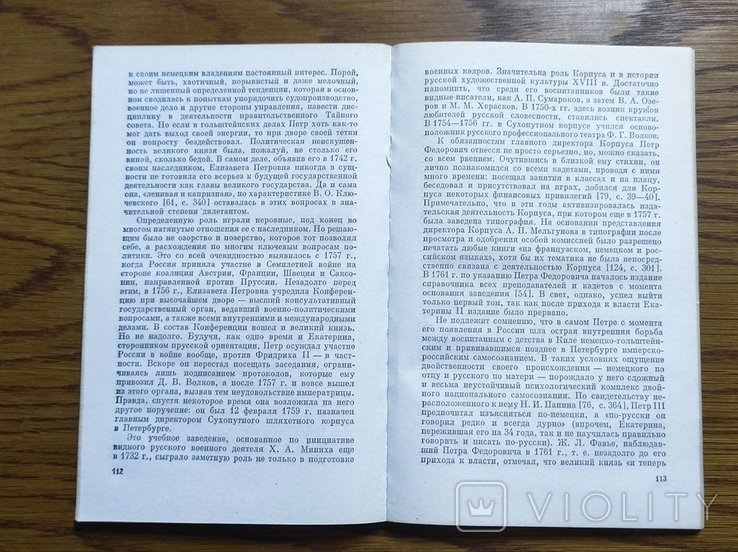 к своим немецким владениям постоянный интерес. Порой,
может быть, хаотичный, порывистый и даже мелочный,
но не лишенный определенной тенденции, которая в основ-
ном сводилась к попыткам упорядочить судопроизводство,
военное дело и другие стороны управления, навести дис-
циплину в деятельности правительственного Тайного
совета. Но если в гольштейнских делах Петр хоть как-то
мог дать выход своей энергии, то при дворе своей тетки
он попросту бездействовал. Политическая неискушен-
ность великого князя была, пожалуй, не столько его
виной, сколько бедой. В самом деле, объявив его в 1742 г.
своим наследником, Елизавета Петровна никогда в сущ-
ности не готовила его всерьез к будущей государственной
деятельности как главы великого государства. Да и сама
она, «ленивая и капризная», по характеристике В. О. Клю-
чевского [61, с. 340] оставалась в этих вопросах в зна-
чительной степени дилетантом.
Определенную роль играли неровные, под конец во
многом натянутые отношения ее с наследником. Но решаю-
щим было не озорство и позерство, которое тот позволял
себе, а расхождения по многим ключевым вопросам по-
литики. Это со всей очевидностью выявилось с 1757 г.,
когда Россия приняла участие в Семилетней войне на
стороне коалиции Австрии, Франции, Швеции и Саксо-
нии, направленной против Пруссии. Незадолго перед
этим, в 1756 г., Елизавета Петровна учредила Конферен-
цию при высочайшем дворе — высший консультативный
государственный орган, ведавший военно-политическими
вопросами, а также всеми внутренними и международными
делами. В состав Конференции вошел и великий князь.
Но не надолго. Будучи, как одно время и Екатерина,
сторонником прусской ориентации, Петр осуждал участие
России в войне вообще, против Фридриха II — в част-
ности. Вскоре он перестал посещать заседания, ограни-
чиваясь лишь подписанием протоколов, которые ему
привозил Д. В. Волков, а после 1757 г. и вовсе вышел
из этого органа, вызвав тем неудовольствие императрицы.
Правда, спустя некоторое время она возложила на него
другое поручение: он был 12 февраля 1759 г. назначен
главным директором Сухопутного шляхетного корпуса
в Петербурге.
Это учебное заведение, основанное по инициативе
видного русского военного деятеля Х. А. Миниха еще
в 1732 г., сыграло заметную роль не только в подготовке
112
военных кадров. Значительна роль Корпуса и в истории
русской художественной культуры XVIII в. Достаточно
напомнить, что среди его воспитанников были такие
видные писатели, как А. П. Сумароков, а затем В. А. Озе-
ров и М. М. Херасков. В 1750-х гг. здесь возник кружок
любителей русской словесности, ставились спектакли.
В 1754—1756 гг. в Сухопутном корпусе учился осново-
положник русского профессионального театра Ф. Г. Волков.
К обязанностям главного директора Корпуса Петр
Федорович отнесся не просто серьезно, но, можно сказать,
со всем рвением. Очутившись в близкой ему стихии, он
лично познакомился со всеми кадетами, проводя с ними
много времени: посещал занятия в классах и на плацу,
беседовал и присутствовал на играх, добился для Кор-
пуса некоторых финансовых привилегий [79, с. 39—40].
Примечательно, что в эти годы активизировалась изда-
тельская деятельность Корпуса, при котором еще в 1757 г.
была заведена типография. На основании представления
директора Корпуса А. П. Мельгунова в типографии после
просмотра и одобрения особой комиссией было разрешено
печатать любые книги «на французском, немецком и рос-
сийском языках», хотя бы их тематика не была непосред-
ственно связана с деятельностью Корпуса [124, с. 301].
В 1761 г. по указанию Петра Федоровича началось издание
справочника всех преподавателей и кадетов с момента
основания заведения [54]. В свет, однако, успел выйти
только первый том, так как после прихода к власти Ека-
терины II издание было прервано.
Не подлежит сомнению, что в самом Петре с момента
его появления в России шла острая внутренняя борьба
между воспитанным с детства в Киле немецко-гольштейн-
ским и прививавшимся позднее в Петербурге имперско-
российским самосознанием. В таких условиях ощущение
двойственности своего происхождения — немецкого по
отцу и русского по матери — порождало у него сложный
и весьма неустойчивый психологический комплекс двой-
ного национального самосознания. По свидетельству не-
расположенного к нему Н. И. Панина [76, с. 364], Петр III
предпочитал изъясняться по-немецки, а «по-русски он
говорил редко и всегда дурно» (впрочем, Екатерина,
пережившая его на 34 года, так и не научилась правильно
говорить и писать по-русски). Ж. Л. Фавье, наблюдав-
ший Петра Федоровича в 1761 г., т. е. незадолго до его
прихода к власти, отмечал, что великий князь «и теперь
113
VIOLITY